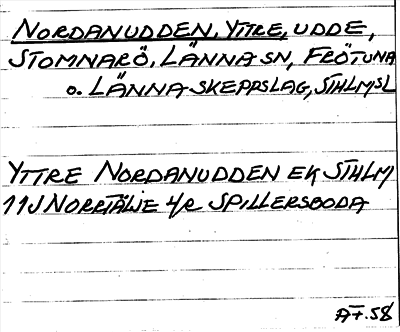 NORDANUDDEN, YTTRE, UDDE,
STOMNARÖ, LÄNNA SN, FRÖTUNA
o. LÄNNA SKEPPSLAG, STHLMSL
YTTRE NORDANUDDEN EK STHLM
11J NORRTÄLJE 4/R SPILLERSBODA
AT. 58